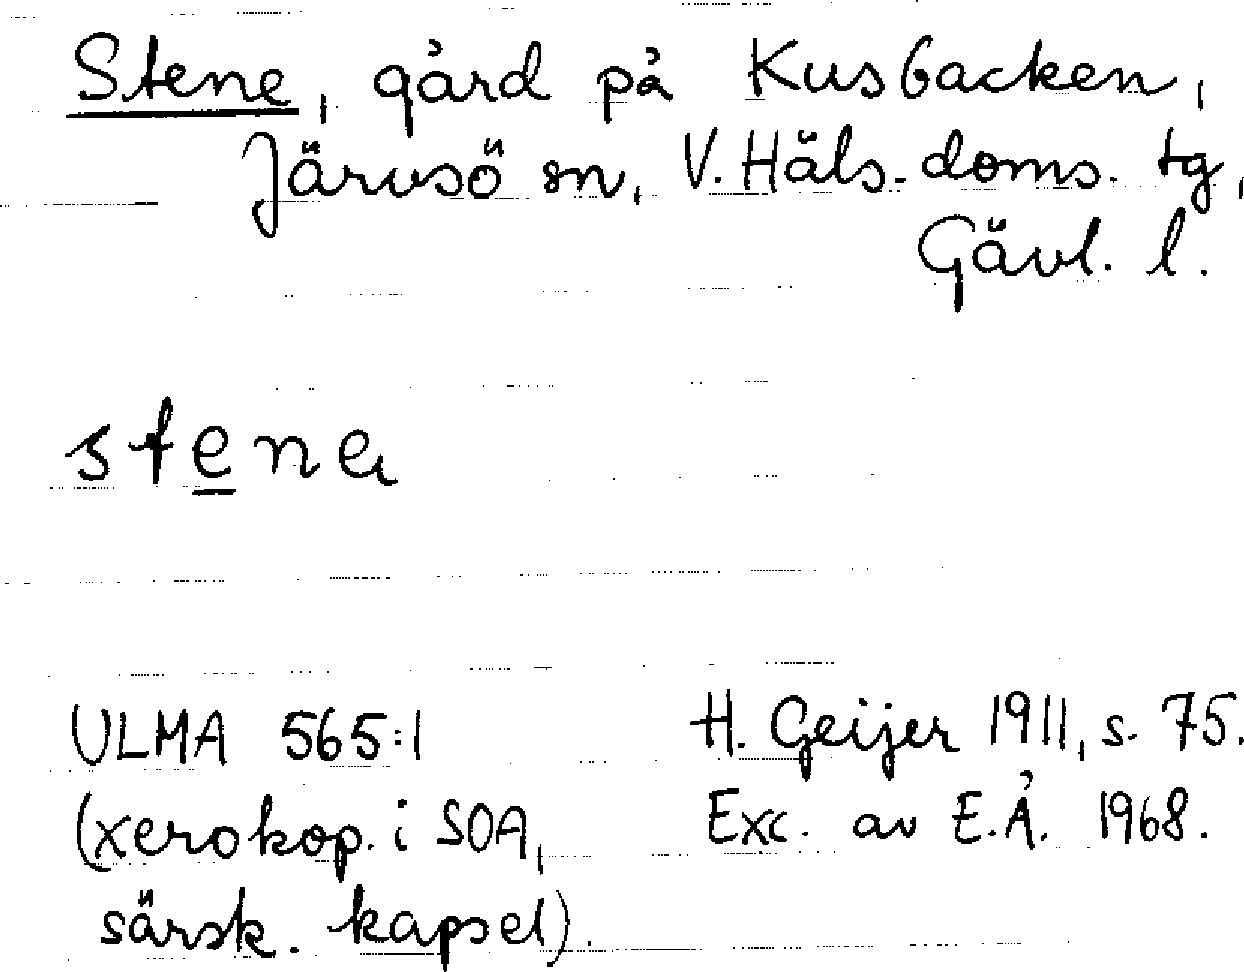 Stene, gård på Kusbacken,
Järvsö sn, V. Häls. doms. tg,
Gävl. l.
stena
ULMA 565:1
(xerokop. i SOA,
särsk. kapsel).
H. Geijer 1911, s. 75.
Exc. av E.Å. 1968.